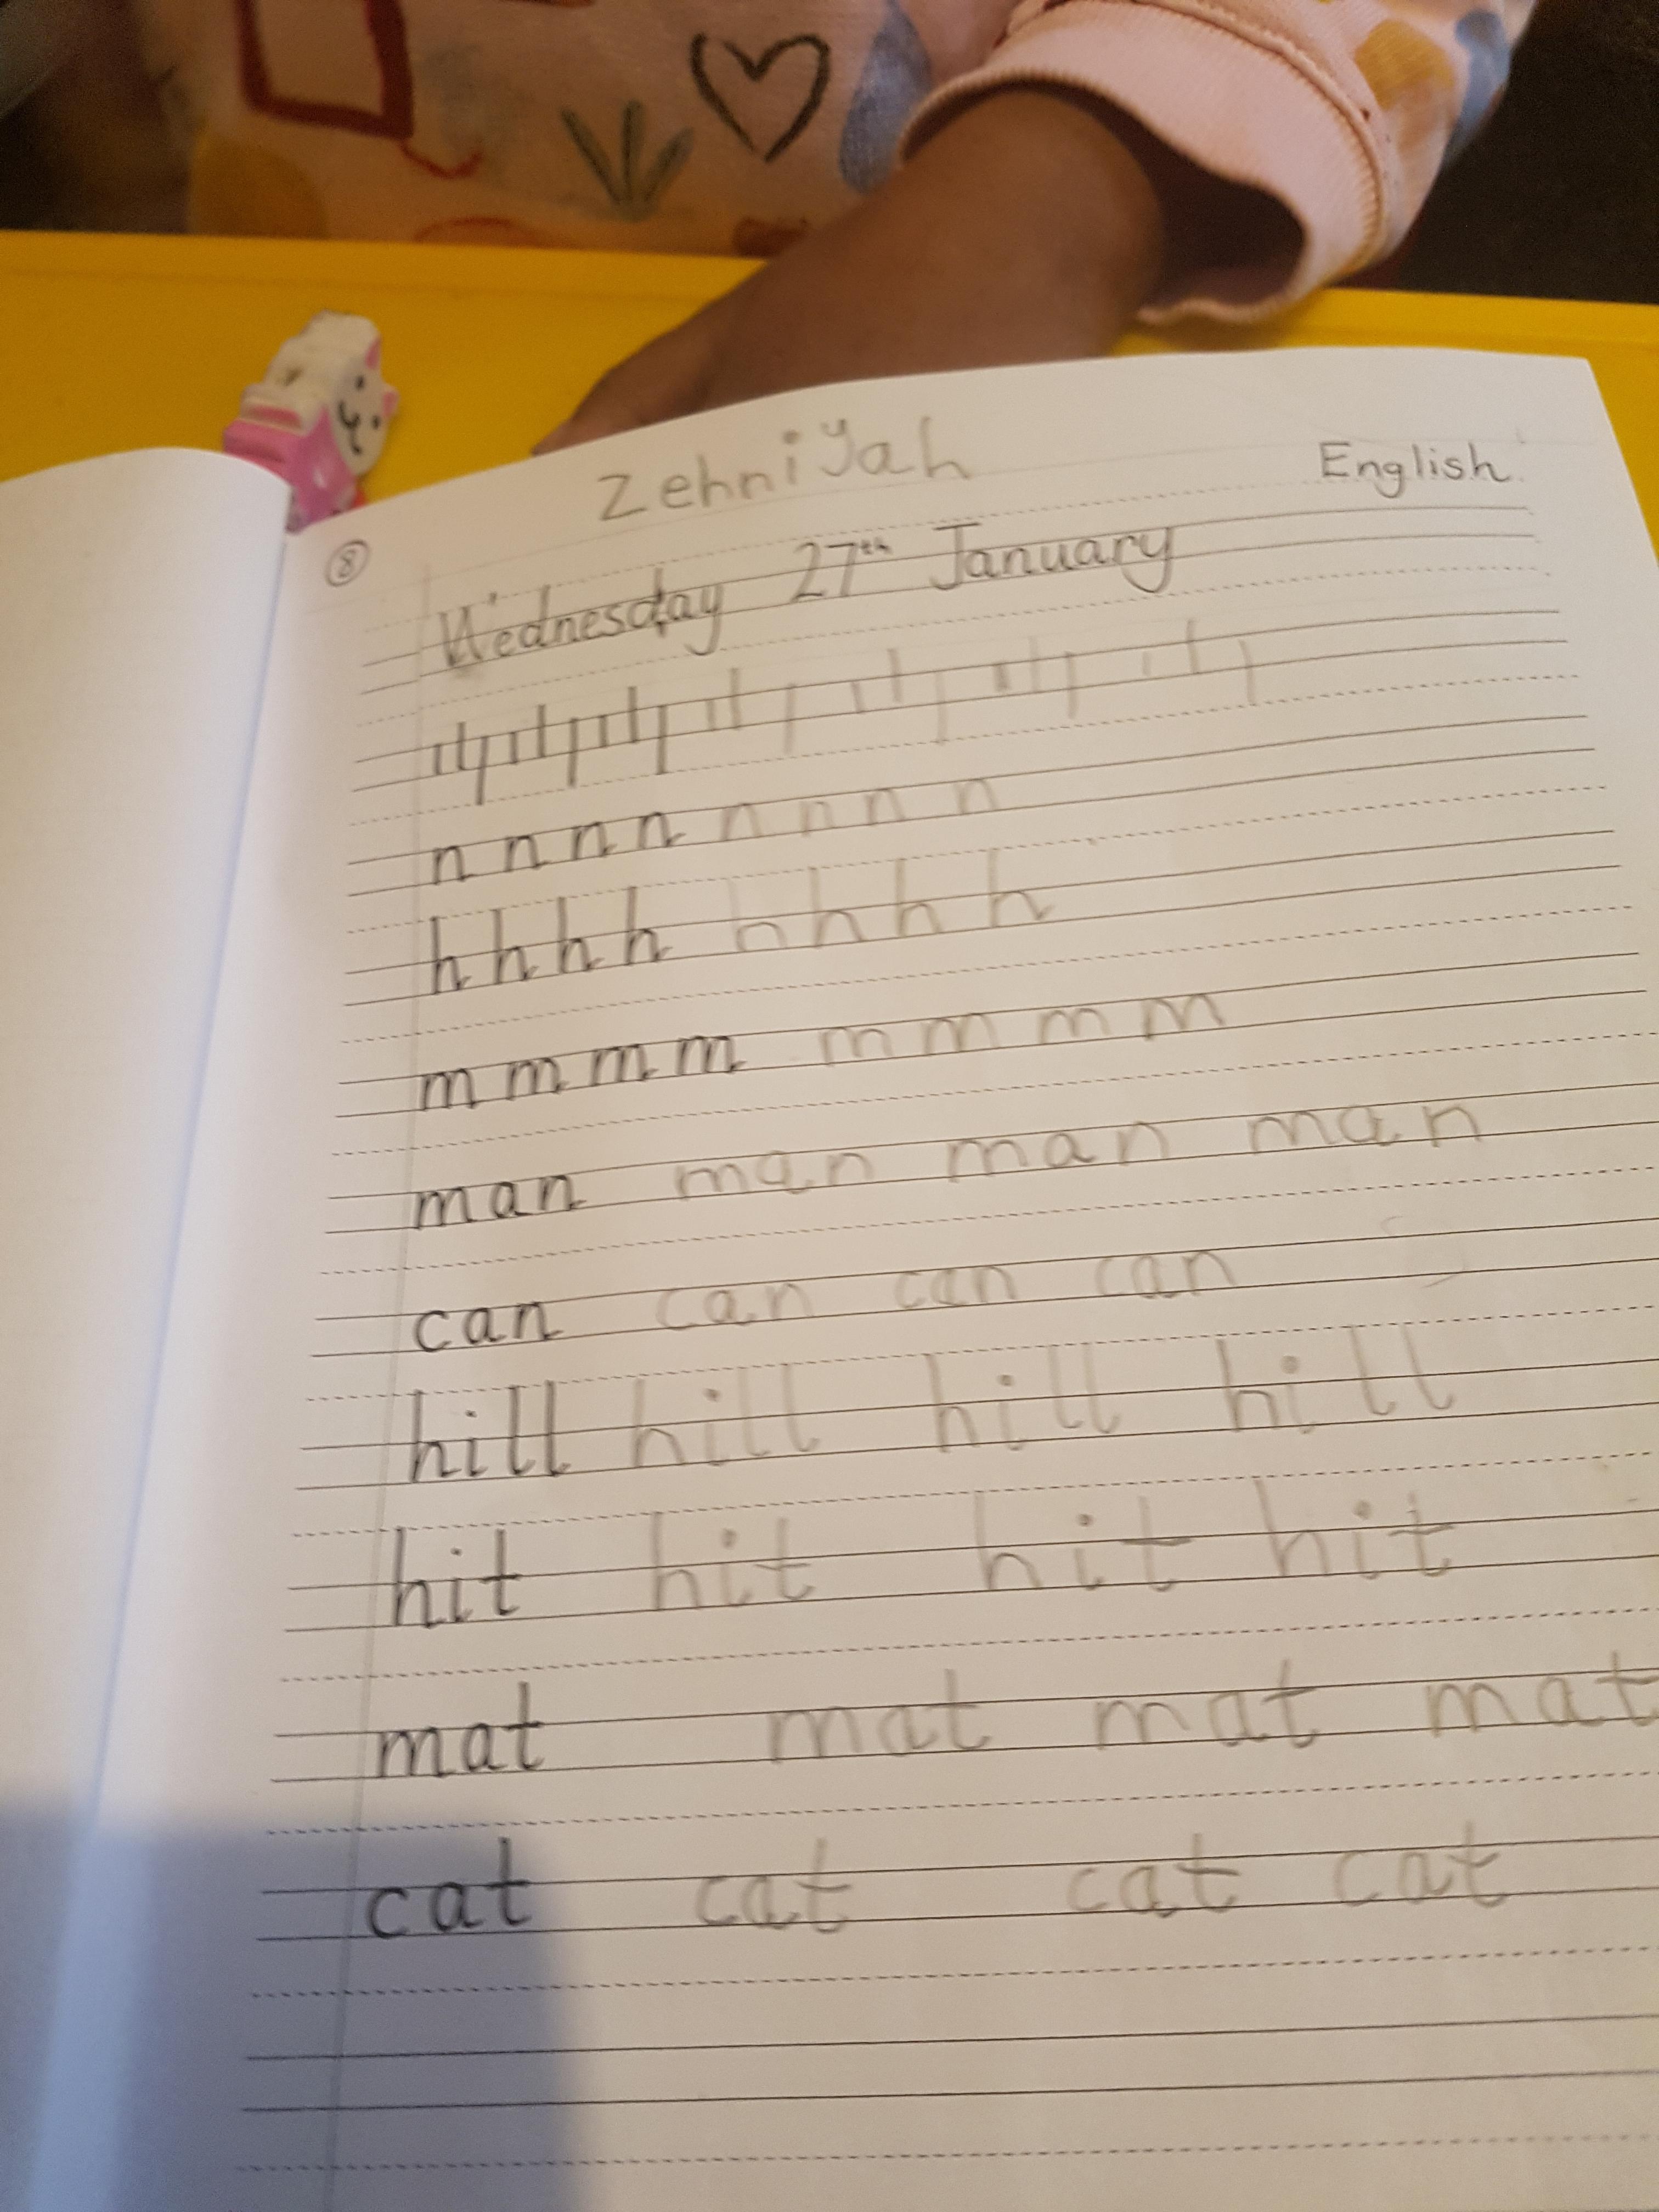 Zehniyah
English
8
Wednesday 27th January
n n n n n n n n
h h h h h h h h
m m m m m m m m
man man man man
can can can can
hill hill hill hill
hit hit hit hit
mat mat mat mat
cat cat cat cat